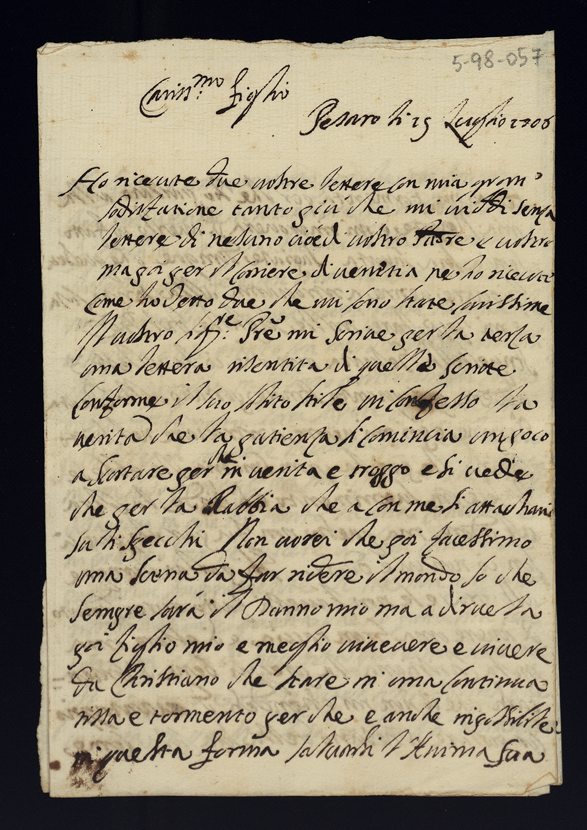 5-98-057
Cariss.mo figlio
Pesaro li 15 Luglio 1706
Ho riceute due vostre lettere con mia gran
sodisfatione tanto più che mi viddi senza
lettere di nesuno cioe di vostro Padre e vostro
ma poi per il coriere di venetia ne ho riceute
come ho detto due che mi sono state carissime
Il vostro Pre mi scrive per la terza
una lettera risentita di quelle scritte
conforme il suo solito stile vi confesso la
verità che la patienza si comincia un poco
a scortare per in verita e troppo e si vede
che per la Rabbia che a con me si attacharia
su li specchi Non vorei che poi facessimo
una scena da far ridere il mondo so che
sempre sarà il Danno mio ma a dirvela
poi figlio mio e meglio vivere
da Christiano che stare in una continua
rissa e tormento per che e anche inposibile
in questa forma salvarsi l'Anima sua